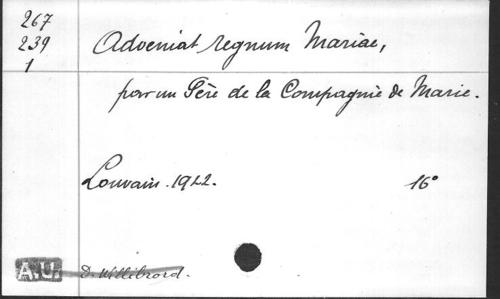 267
239
1
Adveniat regnum Mariae,
par un Père de la Compagnie de Marie.
Louvain. 1922. 16°
A.U. D. Willibrord.